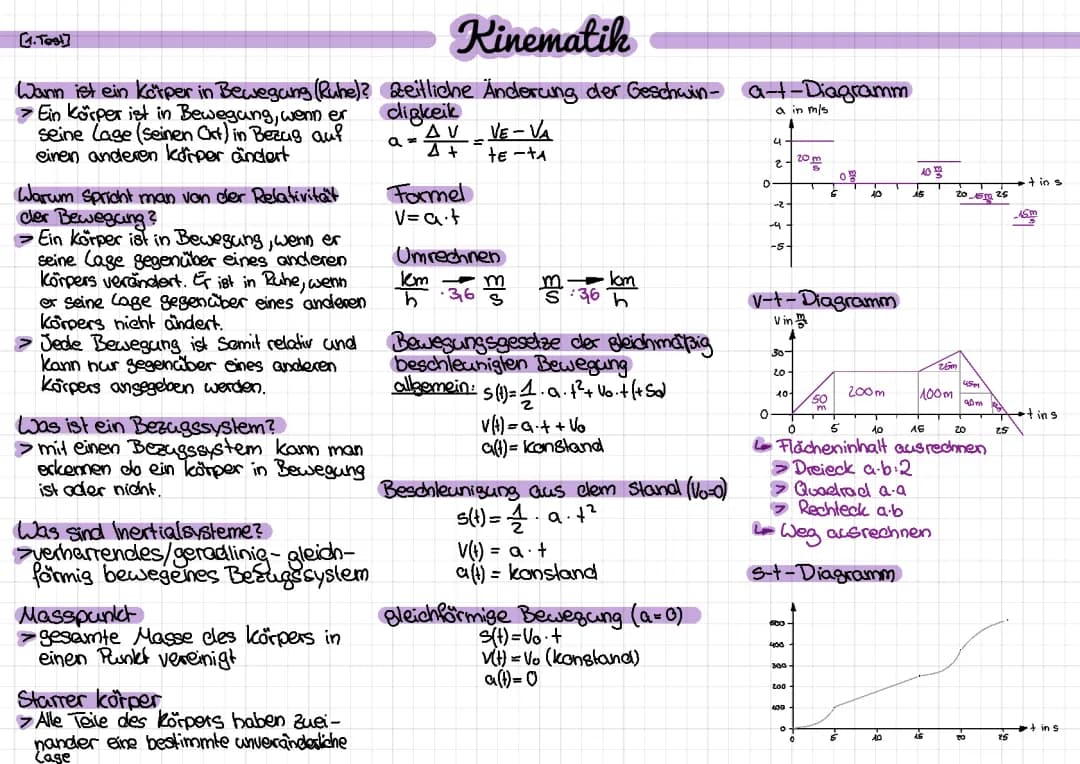 [1. Test]
Kinematik
Wann ist ein Körper in Bewegung (Ruhe)?
> Ein Körper ist in Bewegung, wenn er
seine Lage (seinen Ort) in Bezug auf
einen anderen Körper ändert
Warum spricht man von der Relativität
der Bewegung?
> Ein Körper ist in Bewegung, wenn er
seine Lage gegenüber eines anderen
Körpers verändert. Er ist in Ruhe, wenn
er seine Lage gegenüber eines anderen
Körpers nicht ändert.
> Jede Bewegung ist somit relativ und
kann nur gegenüber eines anderen
Körpers angegeben werden.
Was ist ein Bezugssystem?
> mit einen Bezugssystem kann man
erkennen ob ein Körper in Bewegung
ist oder nicht.
Was sind Inertialsysteme?
> verharrendes/geradlinig-gleich-
förmig bewegenes Bezugssystem
Masspunkt
> gesamte Masse des Körpers in
einen Punkt vereinigt
Starrer Körper
> Alle Teile des Körpers haben zuei-
nander eine bestimmte unveränderliche
Lage
Zeitliche Änderung der Geschwin-
digkeik
a = ΔV/Δt = (VE - VA)/(tE - tA)
Formel
V = a · t
Umrechnen
km/h → · 3,6 m/s m/s → : 3,6 km/h
Bewegungsgesetze der gleichmäßig
beschleunigten Bewegung
allgemein: s(t) = 1/2 · a · t² + V₀ · t (+ S₀)
v(t) = a · t + V₀
a(t) = konstand
Beschleunigung aus dem Stand (V₀=0)
s(t) = 1/2 · a · t²
V(t) = a · t
a(t) = konstand
gleichförmige Bewegung (a = 0)
s(t) = V₀ · t
V(t) = V₀ (konstand)
a(t) = 0
a-t-Diagramm
a in m/s
4
2
20 m/s
0 m/s
10 m/s
0
5 10 15 20 25
t in s
-15 m/s
-2
-15 m/s
-4
-5
v-t-Diagramm
V in m/s
30
20
10
0
25m
50 m
200m
100m
45m
90m
0 5 10 15 20 25
t in s
↳ Flächeninhalt ausrechnen
> Dreieck a·b:2
> Quadrad a·a
> Rechteck a·b
↳ Weg ausrechnen
s-t-Diagramm
500
400
300
200
100
0
0 5 10 15 20 25
t in s